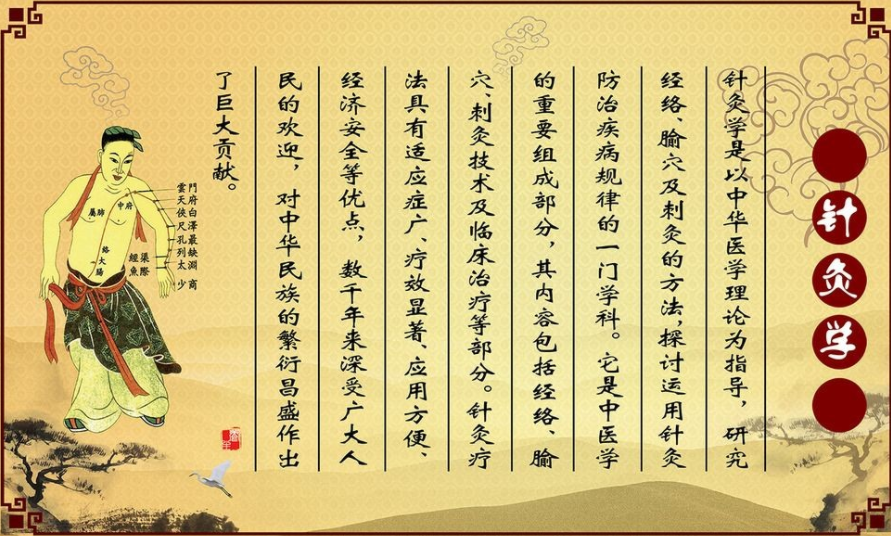 针灸学
针灸学是以中华医学理论为指导，研究
经络、腧穴及刺灸的方法，探讨运用针灸
防治疾病规律的一门学科。它是中医学
的重要组成部分，其内容包括经络、腧
穴、刺灸技术及临床治疗等部分。针灸疗
法具有适应症广、疗效显著、应用方便、
经济安全等优点，数千年来深受广大人
民的欢迎，对中华民族的繁衍昌盛作出
了巨大贡献。
門府白澤最缺淵 商
雲天俠尺孔列太 少
中府
屬肺
絡大腸
渠際
經魚